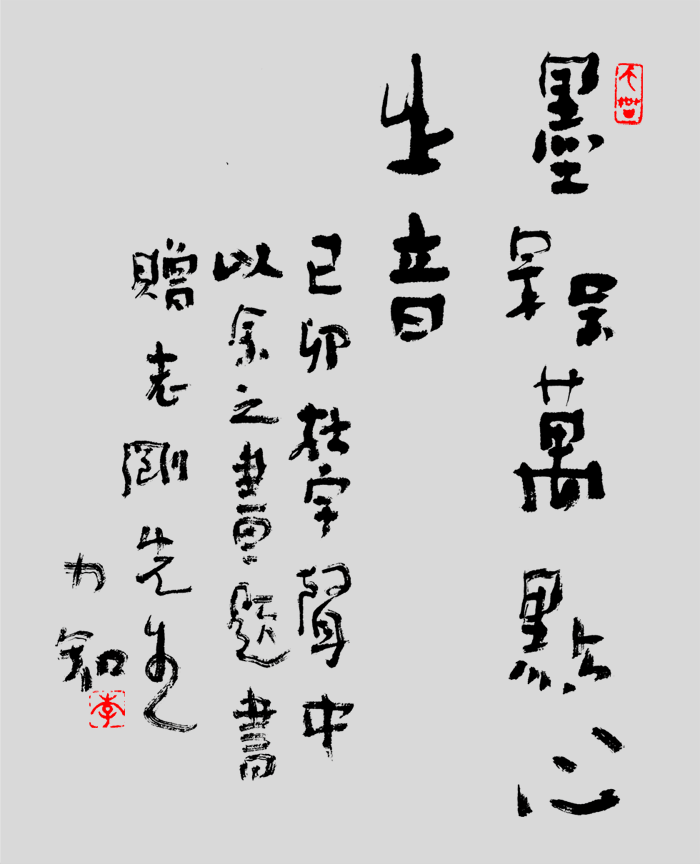 墨槑萬點心
之音
己卯杜宇聲中
以余之畫題書
贈志剛先生
力知
李